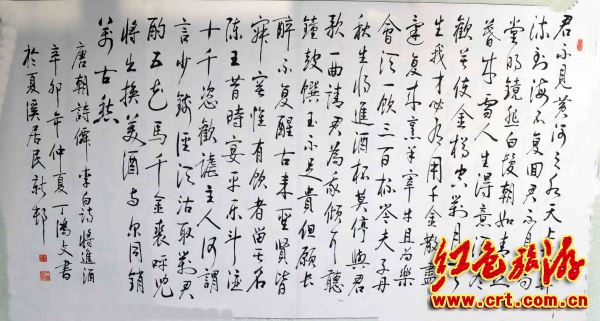 君不見黄河之水天上來奔
流到海不復回君不見高
堂明鏡悲白髮朝如青絲
暮成雪人生得意須盡
歡莫使金樽空對月天
生我才必有用千金散盡
還復來烹羊宰牛且為樂
會須一飲三百杯岑夫子丹
秋生將進酒杯莫停與君
歌一曲請君為我傾耳聽
鐘鼓饌玉不足貴但願長
醉不復醒古來聖賢皆
寂寞惟有飲者留其名
陳王昔時宴平樂斗酒
十千恣歡謔主人何謂
言少錢徑須沽取對君
酌五花馬千金裘呼兒
將出換美酒與尔同銷
萬古愁
唐朝詩僊李白詩將進酒
辛卯年仲夏丁鴻文書
於夏溪居民新邨
红色旅游
www.crt.com.cn